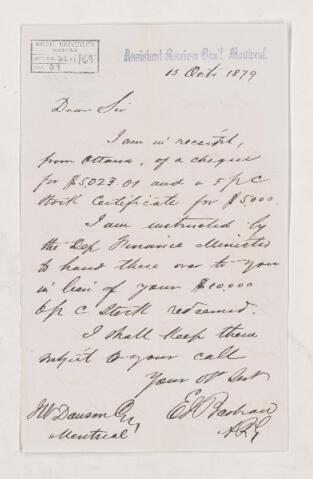 McGILL UNIVERSITY
ARCHIVES
ACC. NO. 2211/69
REF. 39
Assistant Receiver Gen'l. Montreal.
15 Octr 1879
Dear Sir
I am in receipt,
from Ottawa, of a cheque
for $5,023.01 and a 5 p c
Stock Certificate for $5000.
I am instructed by
the Dep Finance Minister
to hand these over to you
in lieu of your $10.000
6 p c Stock redeemed.
I shall keep them
subject to your call
Your Ob Servt
JW Dawson Esq
Montreal
A.R.G